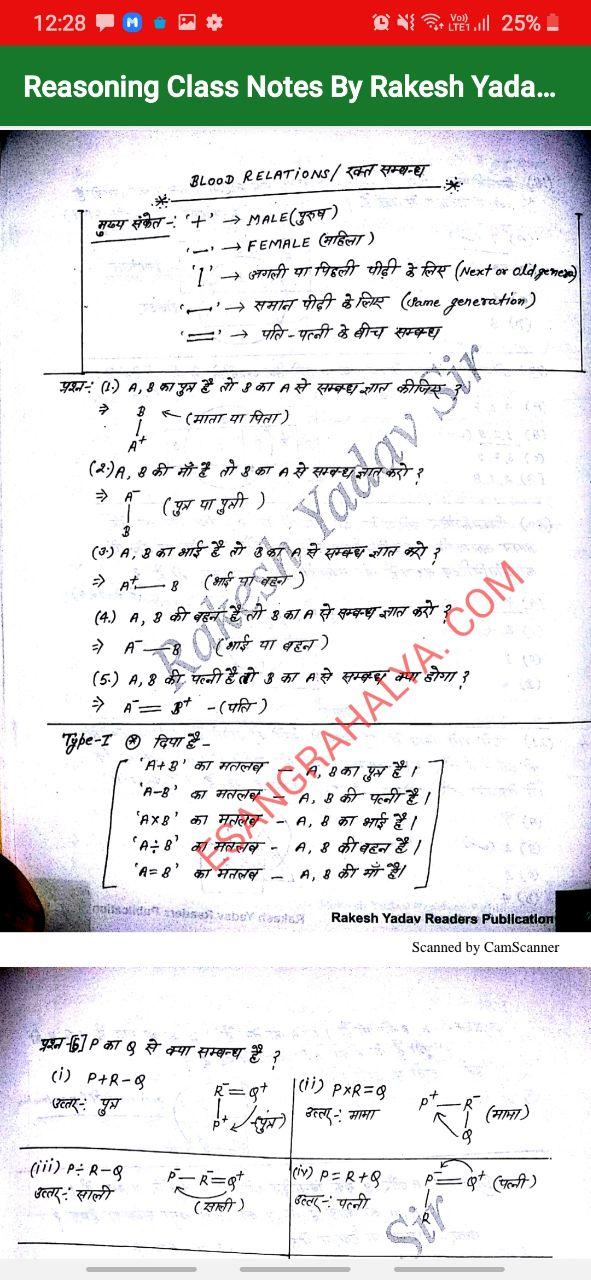 12:28
Vo)) LTE1 25%
Reasoning Class Notes By Rakesh Yada...
BLOOD RELATIONS/ रक्त सम्बन्ध
मुख्य संकेत -: '+' → MALE (पुरुष)
'—' → FEMALE (महिला)
'|' → अगली या पिछली पीढ़ी के लिए (Next or old genera)
'—' → समान पीढ़ी के लिए (Same generation)
'=' → पति-पत्नी के बीच सम्बन्ध
प्रश्न-: (1.) A, B का पुत्र है तो B का A से सम्बन्ध ज्ञात कीजिए ?
⇒ B ← (माता या पिता)
|
A+
(2.) A, B की माँ है तो B का A से सम्बन्ध ज्ञात करो ?
⇒ A- (पुत्र या पुत्री)
|
B
(3.) A, B का भाई है तो B का A से सम्बन्ध ज्ञात करो ?
⇒ A+ — B (भाई या बहन)
(4.) A, B की बहन है तो B का A से सम्बन्ध ज्ञात करो ?
⇒ A- — B (भाई या बहन)
(5.) A, B की पत्नी है तो B का A से सम्बन्ध क्या होगा ?
⇒ A- = B+ - (पति)
Type-I * दिया है -
'A+B' का मतलब — A, B का पुत्र है।
'A-B' का मतलब — A, B की पत्नी है।
'A×B' का मतलब - A, B का भाई है।
'A÷B' का मतलब - A, B की बहन है।
'A=B' का मतलब — A, B की माँ है।
Rakesh Yadav Sir
ESANGRAHALYA.COM
Rakesh Yadav Readers Publication
Scanned by CamScanner
प्रश्न-[6] P का Q से क्या सम्बन्ध है ?
(i) P+R-Q
उत्तर-: पुत्र
R- = Q+
|
P+ (पुत्र)
(ii) P×R=Q
उत्तर-: मामा
P+ — R- (मामा)
|
Q
(iii) P÷R-Q
उत्तर-: साली
P- — R- = Q+
(साली)
(iv) P=R+Q
उत्तर-: पत्नी
P- = Q+ (पत्नी)
|
R
Sir